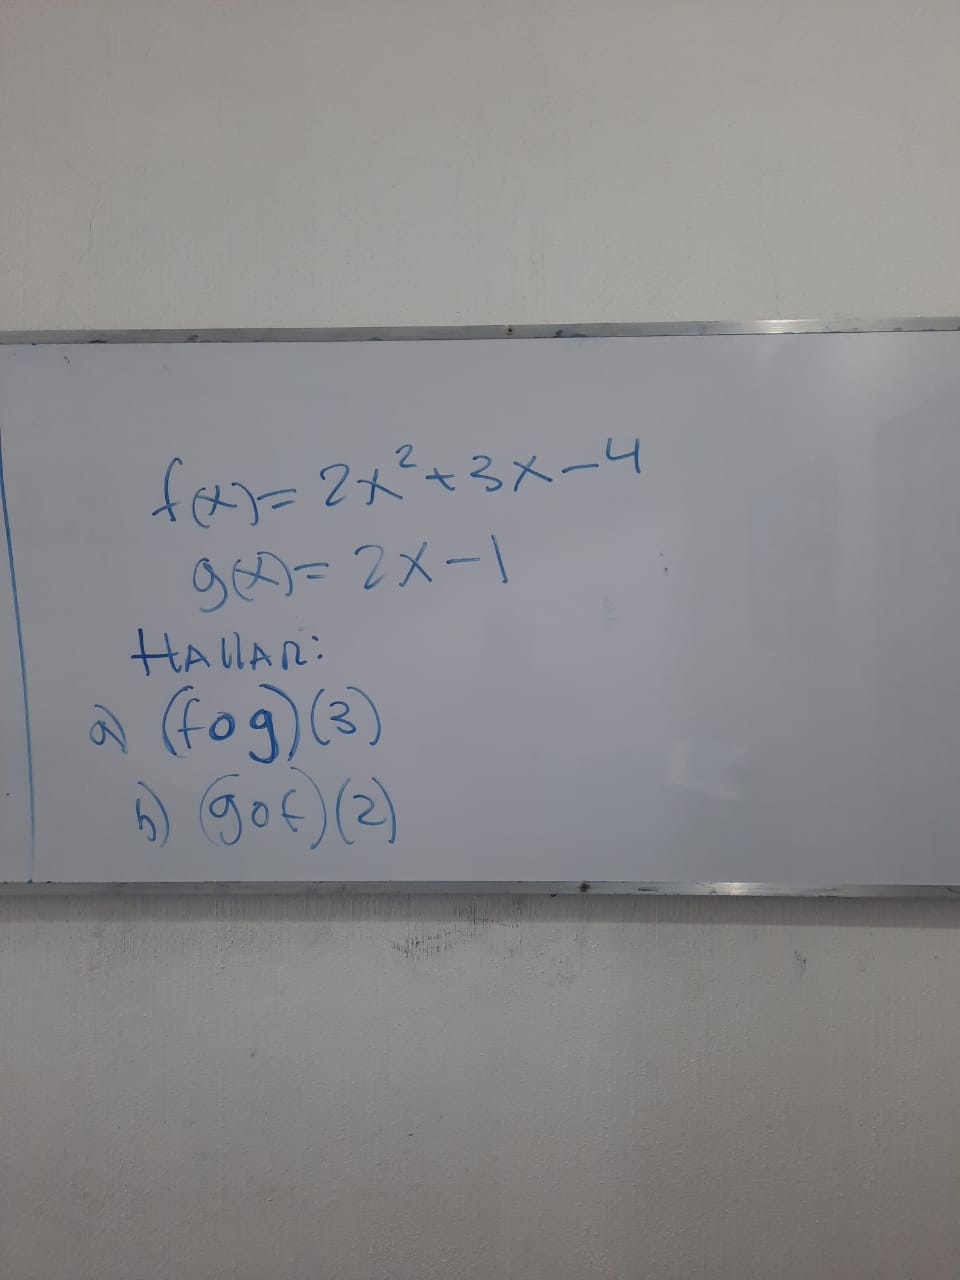 f(x)= 2x²+3x-4
g(x)= 2x-1
HALLAR:
a) (fog)(3)
b) (gof)(2)